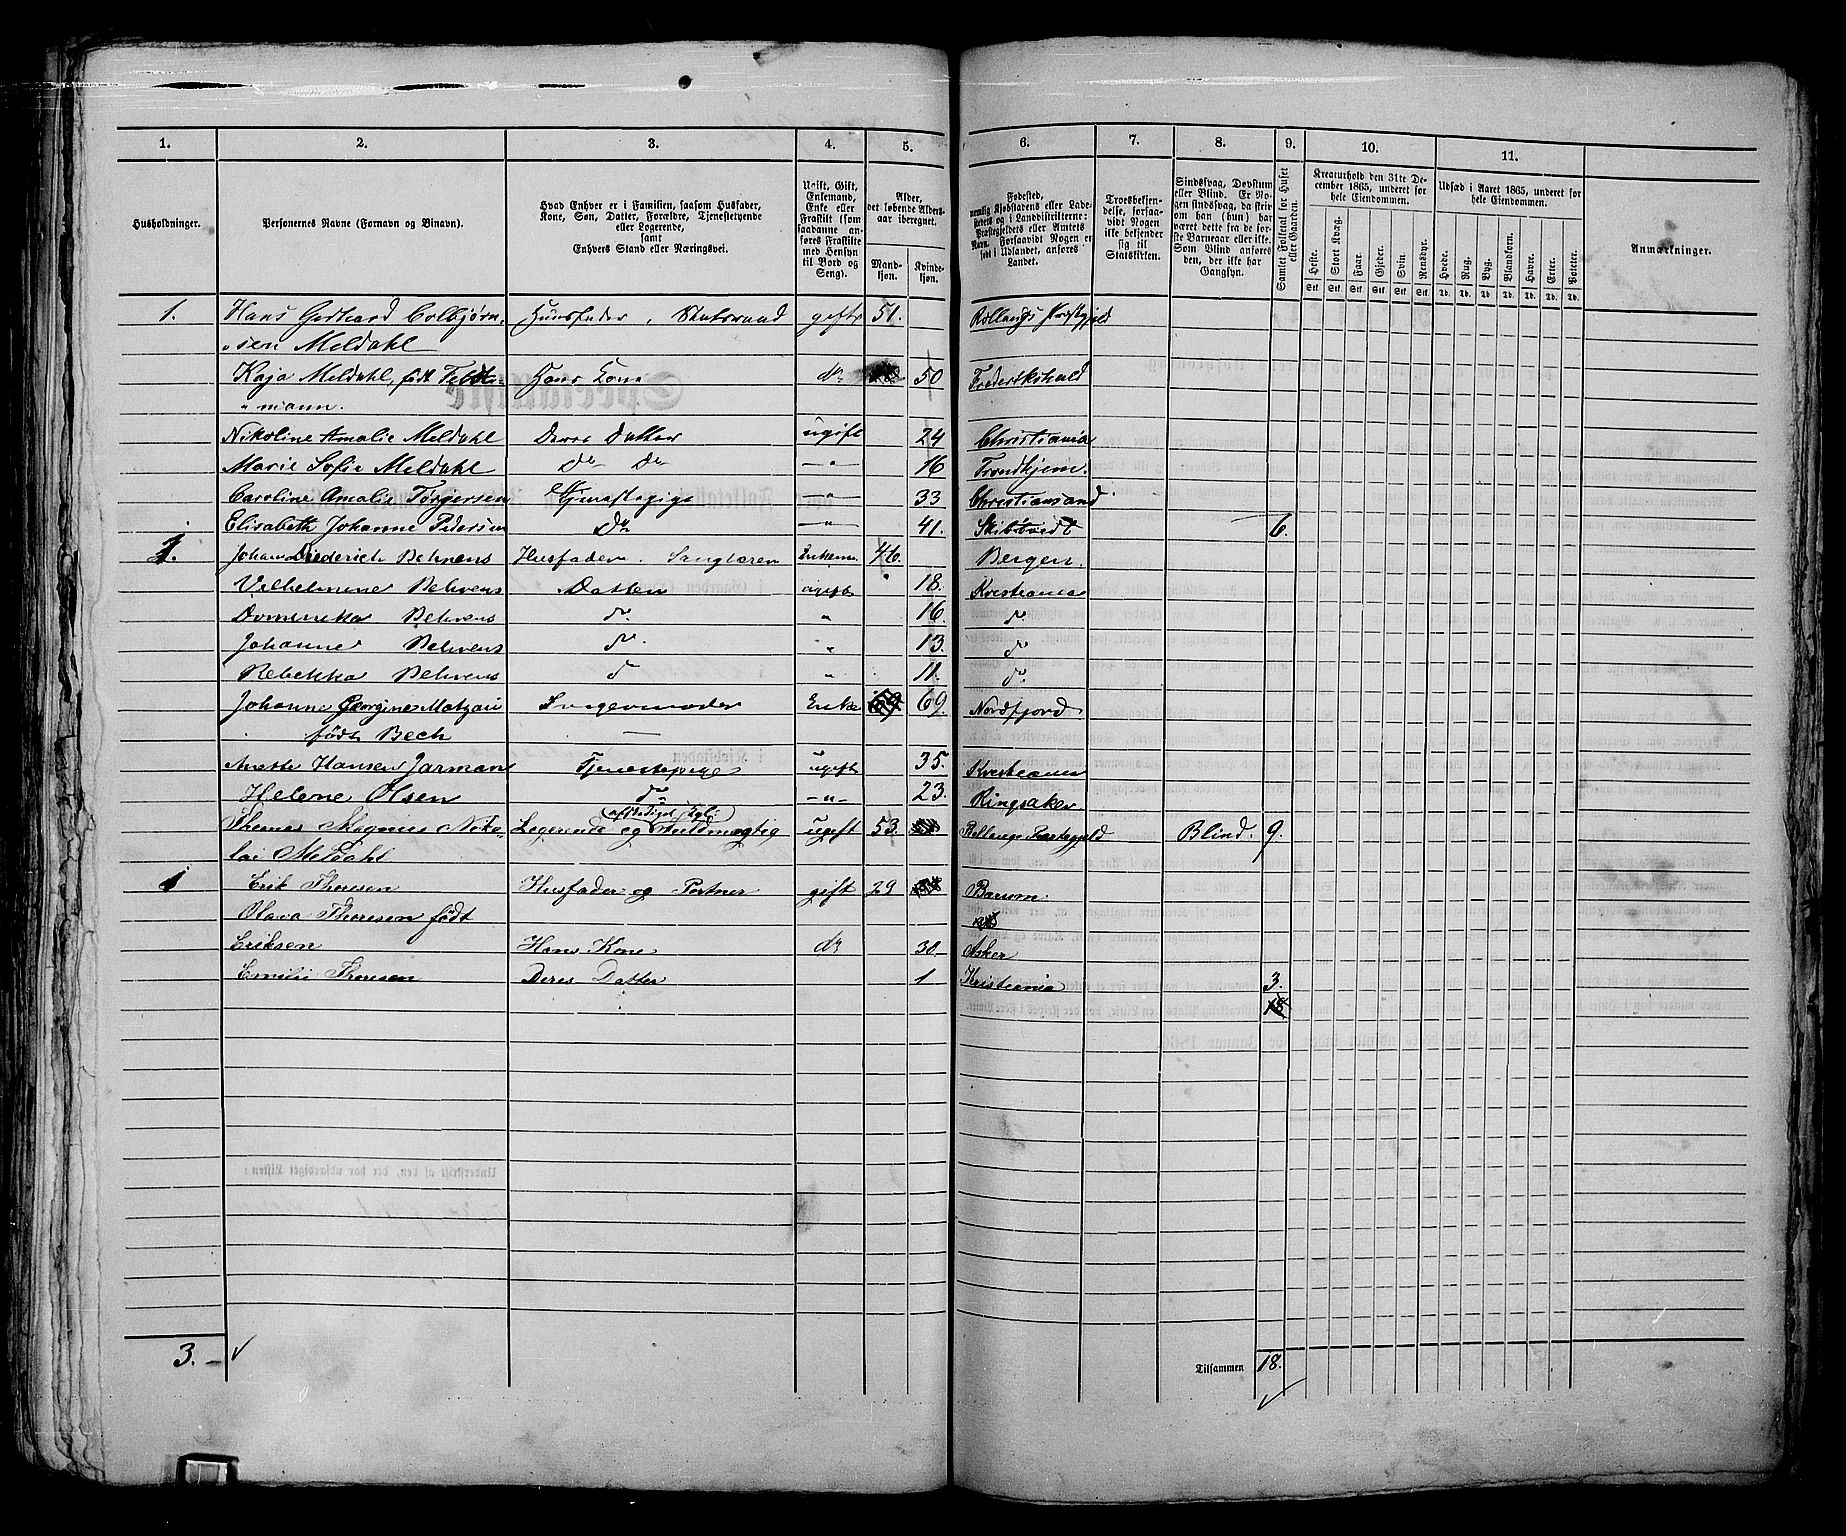 1. 2. 3. 4. 5. 6. 7. 8. 9. 10. 11.
Husholdninger.
Personernes Navne (Fornavn og Binavn).
Hvad Enhver er i Familien, saasom Husfader,
Kone, Søn, Datter, Forældre, Tjenestetyende
eller Logerende,
samt
Enhvers Stand eller Næringsvei.
Ugift, Gift,
Enkemand,
Enke eller
Fraskilt (som
saadanne an-
føres Fraskilte
med Hensyn
til Bord og
Seng).
Alder,
det løbende Alders-
aar iberegnet.
Mand-
kjøn.
Kvinde-
kjøn.
Fødested,
nemlig Kjøbstadens eller Lade-
stedets og i Landdistrikterne:
Præstegjeldets eller Amtets
Navn. Forsaavidt Nogen er
født i Udlandet, anføres
Landet.
Troesbekjen-
delse, forsaa-
vidt Nogen
ikke bekjender
sig til
Statskirken.
Sindssvag, Døvstum
eller Blind. Er No-
gen sindssvag, da skrives
om han (hun) har
været dette fra de før-
ste Barneaar eller ikke.
Som Blind anføres
den, der ikke har
Gangsyn.
Samlet Folketal for Huset
eller Gaarden.
Kreaturhold den 31te De-
cember 1865, underet for
hele Eiendommen.
Heste. Stort Kvæg. Faar. Gjeder. Svin. Rensdyr.
Stk. Stk. Stk. Stk. Stk. Stk.
Udsæd i Aaret 1865, underet for
hele Eiendommen.
Hvede. Rug. Byg. Blandkorn. Havre. Erter. Poteter.
Td. Td. Td. Td. Td. Td. Td.
Anmærkninger.
1. Hans Gerhard Colbjørn- Huusfader, Statsraad gift 51. Præstegjeld
sen Meldahl
Kaja Meldahl, født Hans Kone do 50 Frederikshald
mann.
Nikoline Amalie Meldahl Deres Datter ugift 24 Christiania
Marie Sofie Meldahl do do " 16 Trondhjem.
Caroline Amalie Torgersen Tjenestepige " 33 Christiansand
Elisabeth Johanne Pedersen do " 41. Skibtvedt 6.
1. Johan Diederich Behrens Husfader. Sanglærer Enkem 46. Bergen.
Vilhelmine Behrens Datter ugift 18. Kristiania
Dominika Behrens do. " 16 do.
Johanne Behrens do. " 13. d
Rebekka Behrens d " 11. do.
Johanne Georgine Svigermoder Enke 69. Nordfjord
født Bech
Anette Hansen Jarman Tjenestepige ugift 35. Kristiania
Helene Olsen do -"- 23. Ringsaker
Thomas Magnus Niko- Logerende og afskediget Kgl: Fuldmægtig ugift 53. Præstegjeld Blind. 9.
lai Meldahl
1 Erik Thoresen Husfader og Portner gift 29 Bærum
Olava Thoresen født
Eriksen Hans Kone do 30. Asker
Emilie Thoresen Deres Datter 1 Kristiania 3.
18
3.
Tilsammen 18.